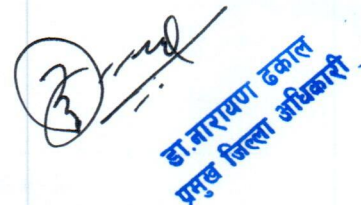 डा.नारायण ढकाल
प्रमुख जिल्ला अधिकारी